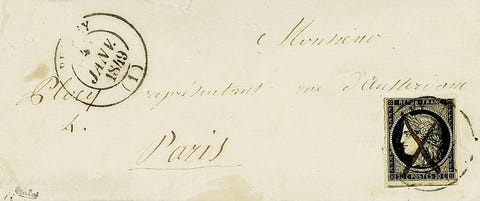 JANV.
1849
(1)
Monsieur
représentant rue d'Austerlitz
4.
Paris
REPUB. FRANC.
20 C POSTES 20 C